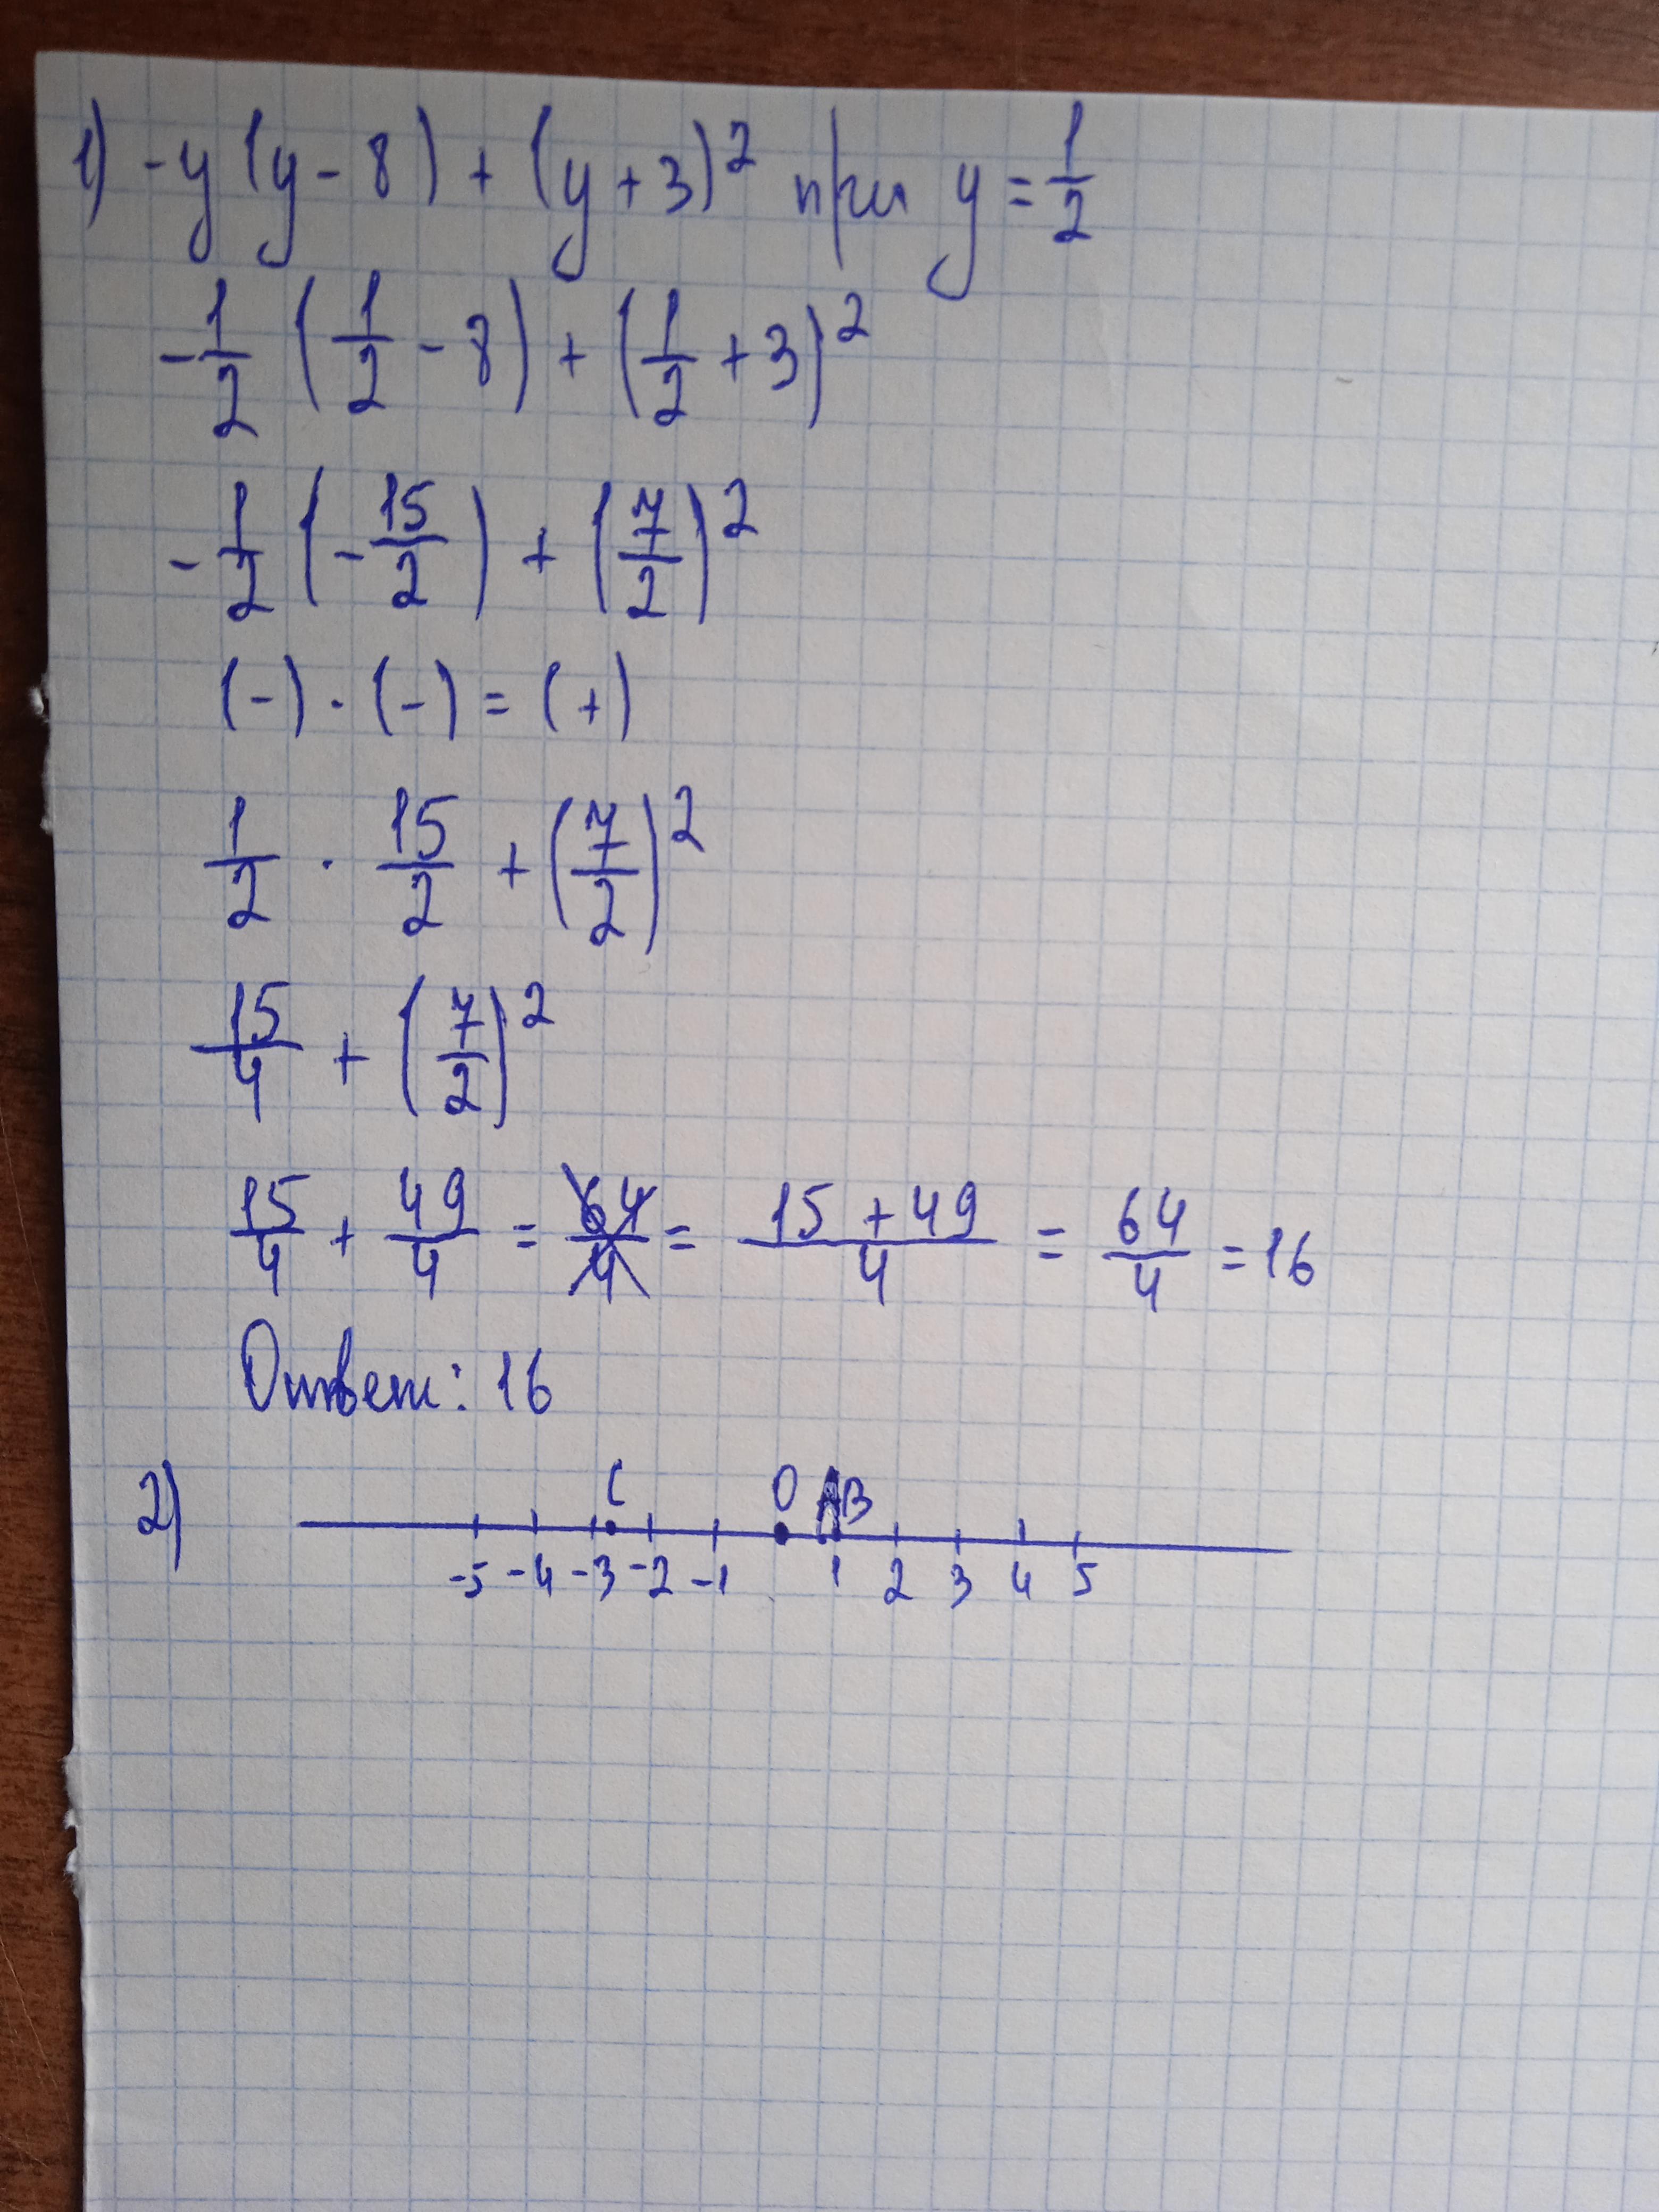 1) -y (y - 8) + (y + 3)² при y = 1/2
-1/2 (1/2 - 8) + (1/2 + 3)²
-1/2 (-15/2) + (7/2)²
(-) · (-) = (+)
1/2 · 15/2 + (7/2)²
15/4 + (7/2)²
15/4 + 49/4 = 64/4 = 15 + 49/4 = 64/4 = 16
Ответ: 16
2) C O A B
-5 -4 -3 -2 -1 1 2 3 4 5